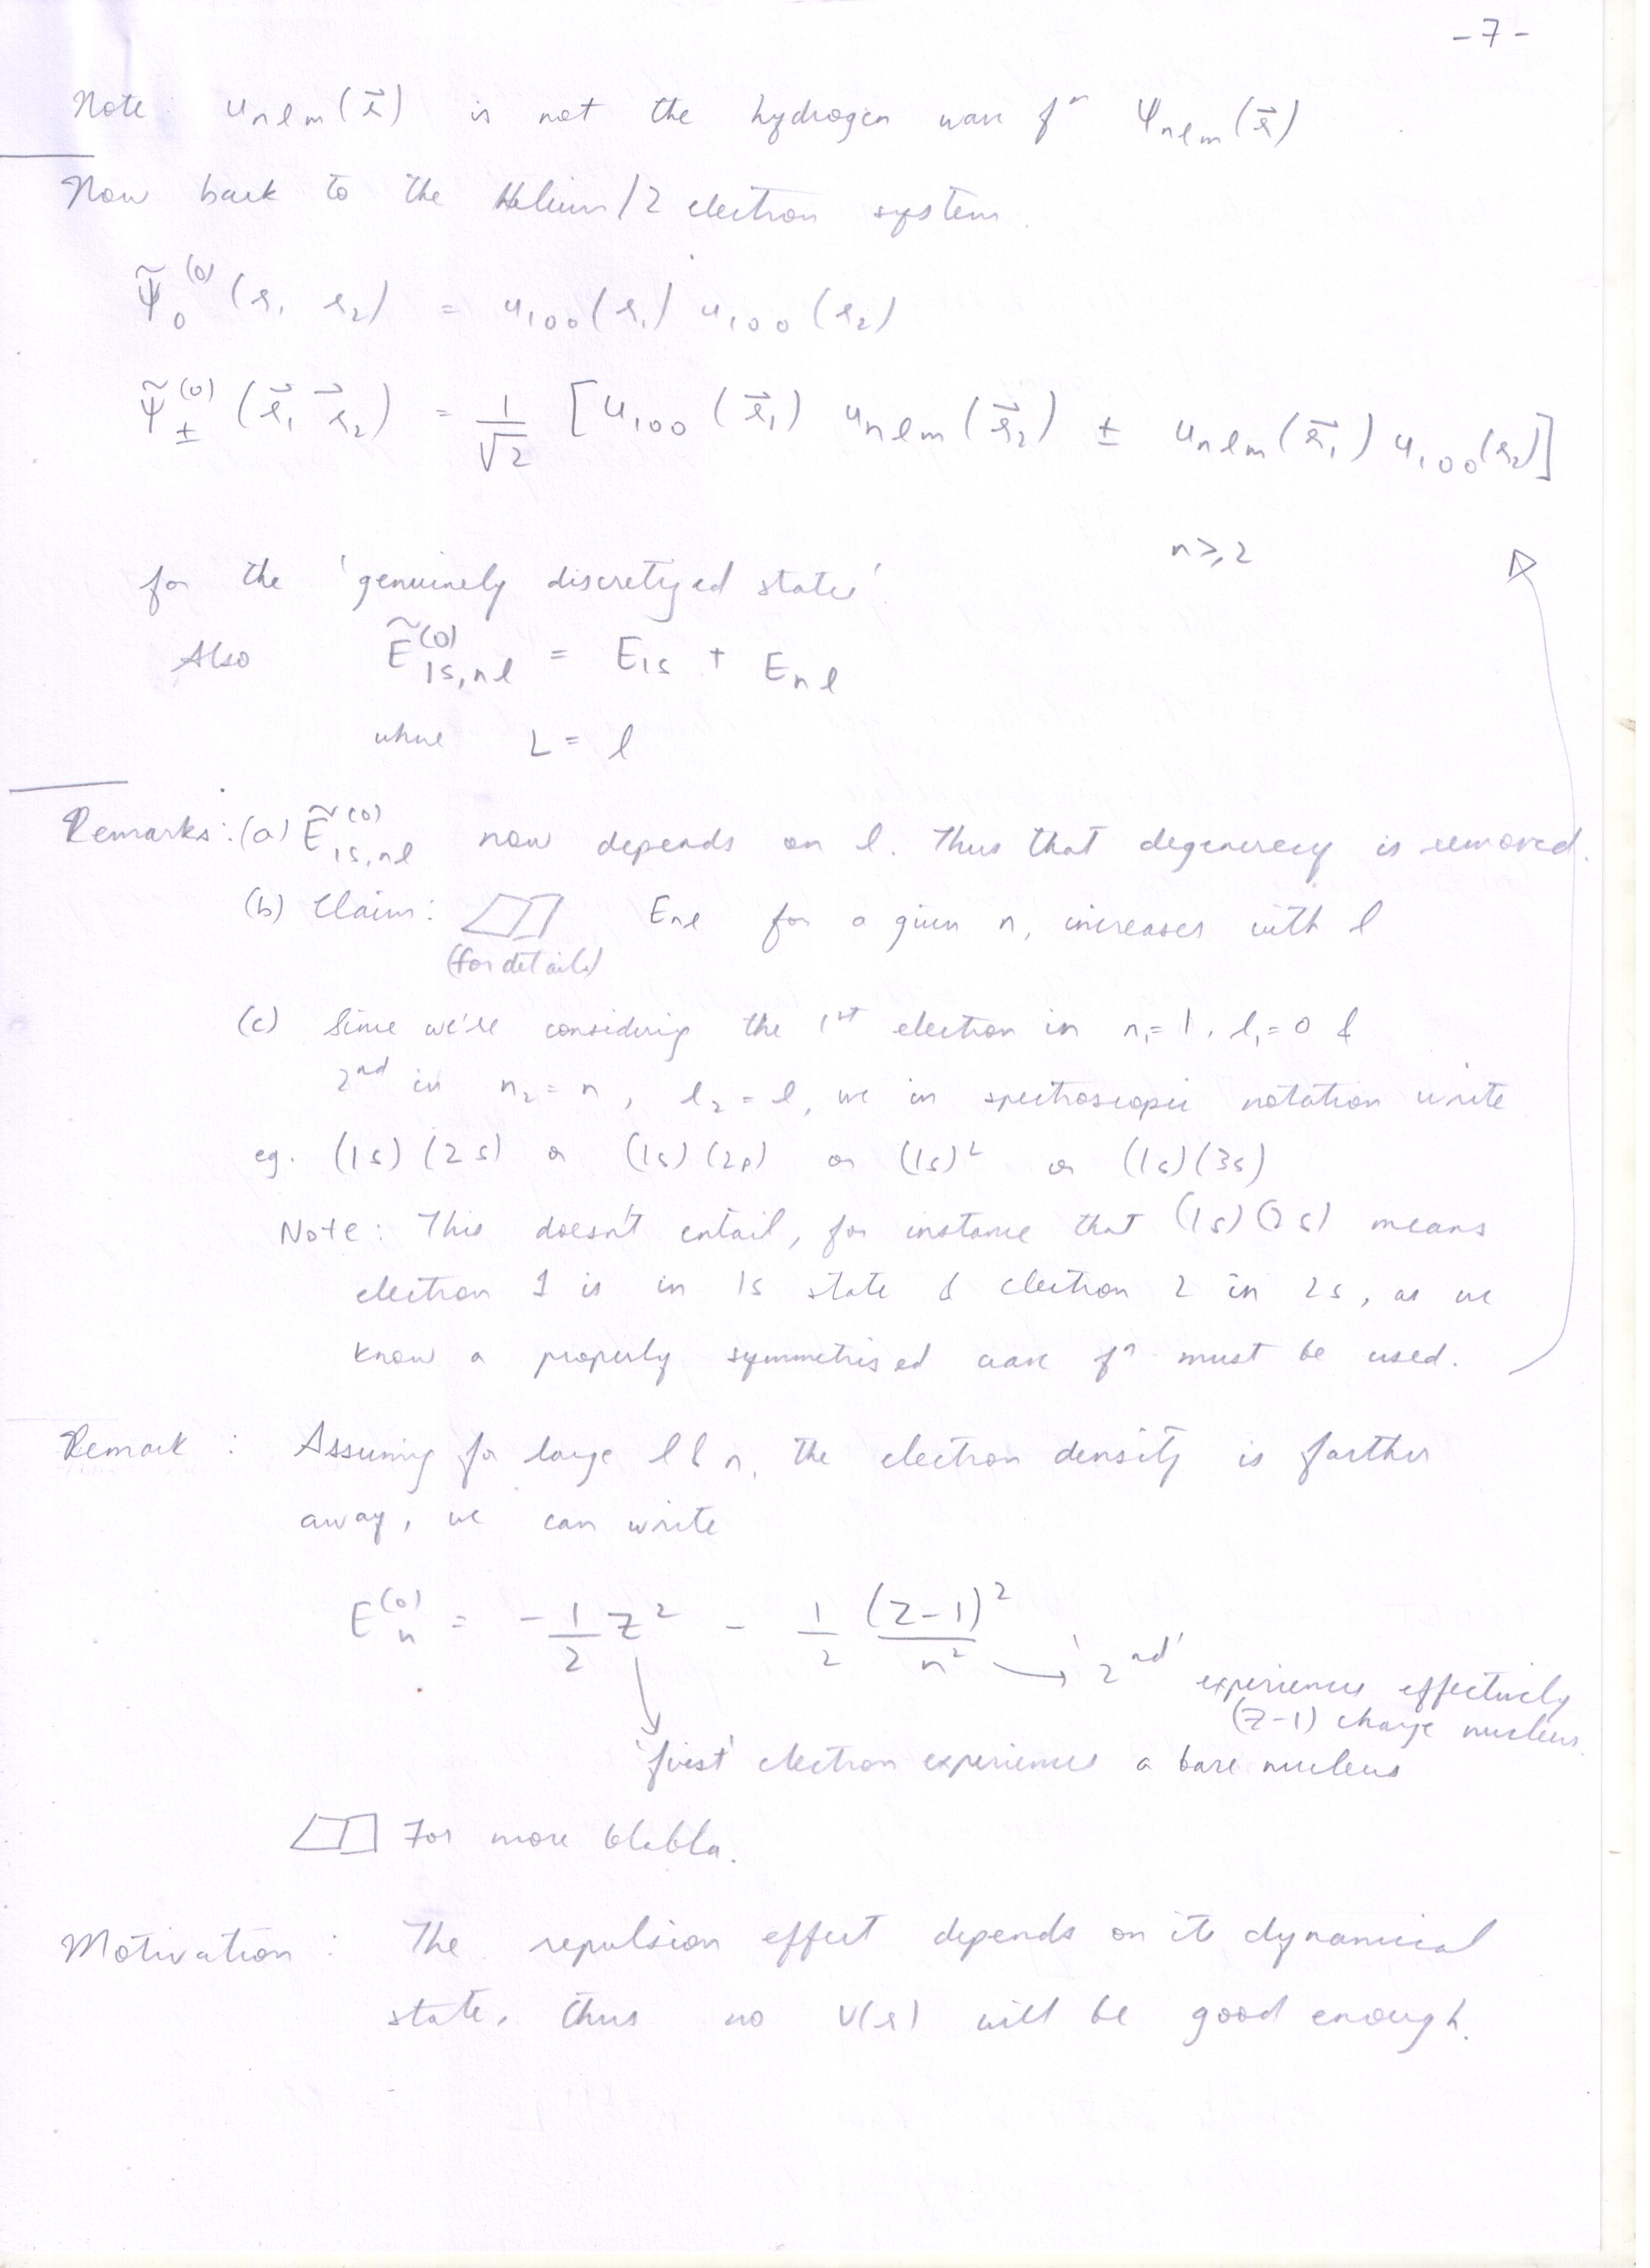 -7-
Note: u_{nlm}(\vec{r}) is not the hydrogen wave fⁿ ψ_{nlm}(\vec{r})
Now back to the Helium/2 electron system.
\tilde{ψ}_0^{(0)}(r_1 r_2) = u_{100}(r_1) u_{100}(r_2)
\tilde{ψ}_±^{(0)}(\vec{r}_1 \vec{r}_2) = \frac{1}{\sqrt{2}} [u_{100}(\vec{r}_1) u_{nlm}(\vec{r}_2) ± u_{nlm}(\vec{r}_1) u_{100}(r_2)]
n ⩾ 2
for the 'genuinely discretized states'
Also \tilde{E}_{1s,nl}^{(0)} = E_{1s} + E_{nl}
where L = l
Remarks: (a) \tilde{E}_{1s,nl}^{(0)} now depends on l. Thus that degeneracy is removed.
(b) Claim: E_{nl} for a given n, increases with l
(for details)
(c) Since we're considering the 1st electron in n_1 = 1, l_1 = 0 &
2nd in n_2 = n, l_2 = l, we in spectroscopic notation write
eg. (1s)(2s) or (1s)(2p) or (1s)² or (1s)(3s)
Note: This doesn't entail, for instance that (1s)(2s) means
electron 1 is in 1s state & electron 2 in 2s, as we
know a properly symmetrised wave fⁿ must be used.
Remark: Assuming for large l & n, the electron density is farther
away, we can write
E_n^{(0)} = -\frac{1}{2} Z² - \frac{1}{2} \frac{(Z-1)²}{n²} → '2nd' experiences effectively
(Z-1) charge nucleus.
'first' electron experiences a bare nucleus
For more blabla.
Motivation: The repulsion effect depends on its dynamical
state, thus no V(r) will be good enough.